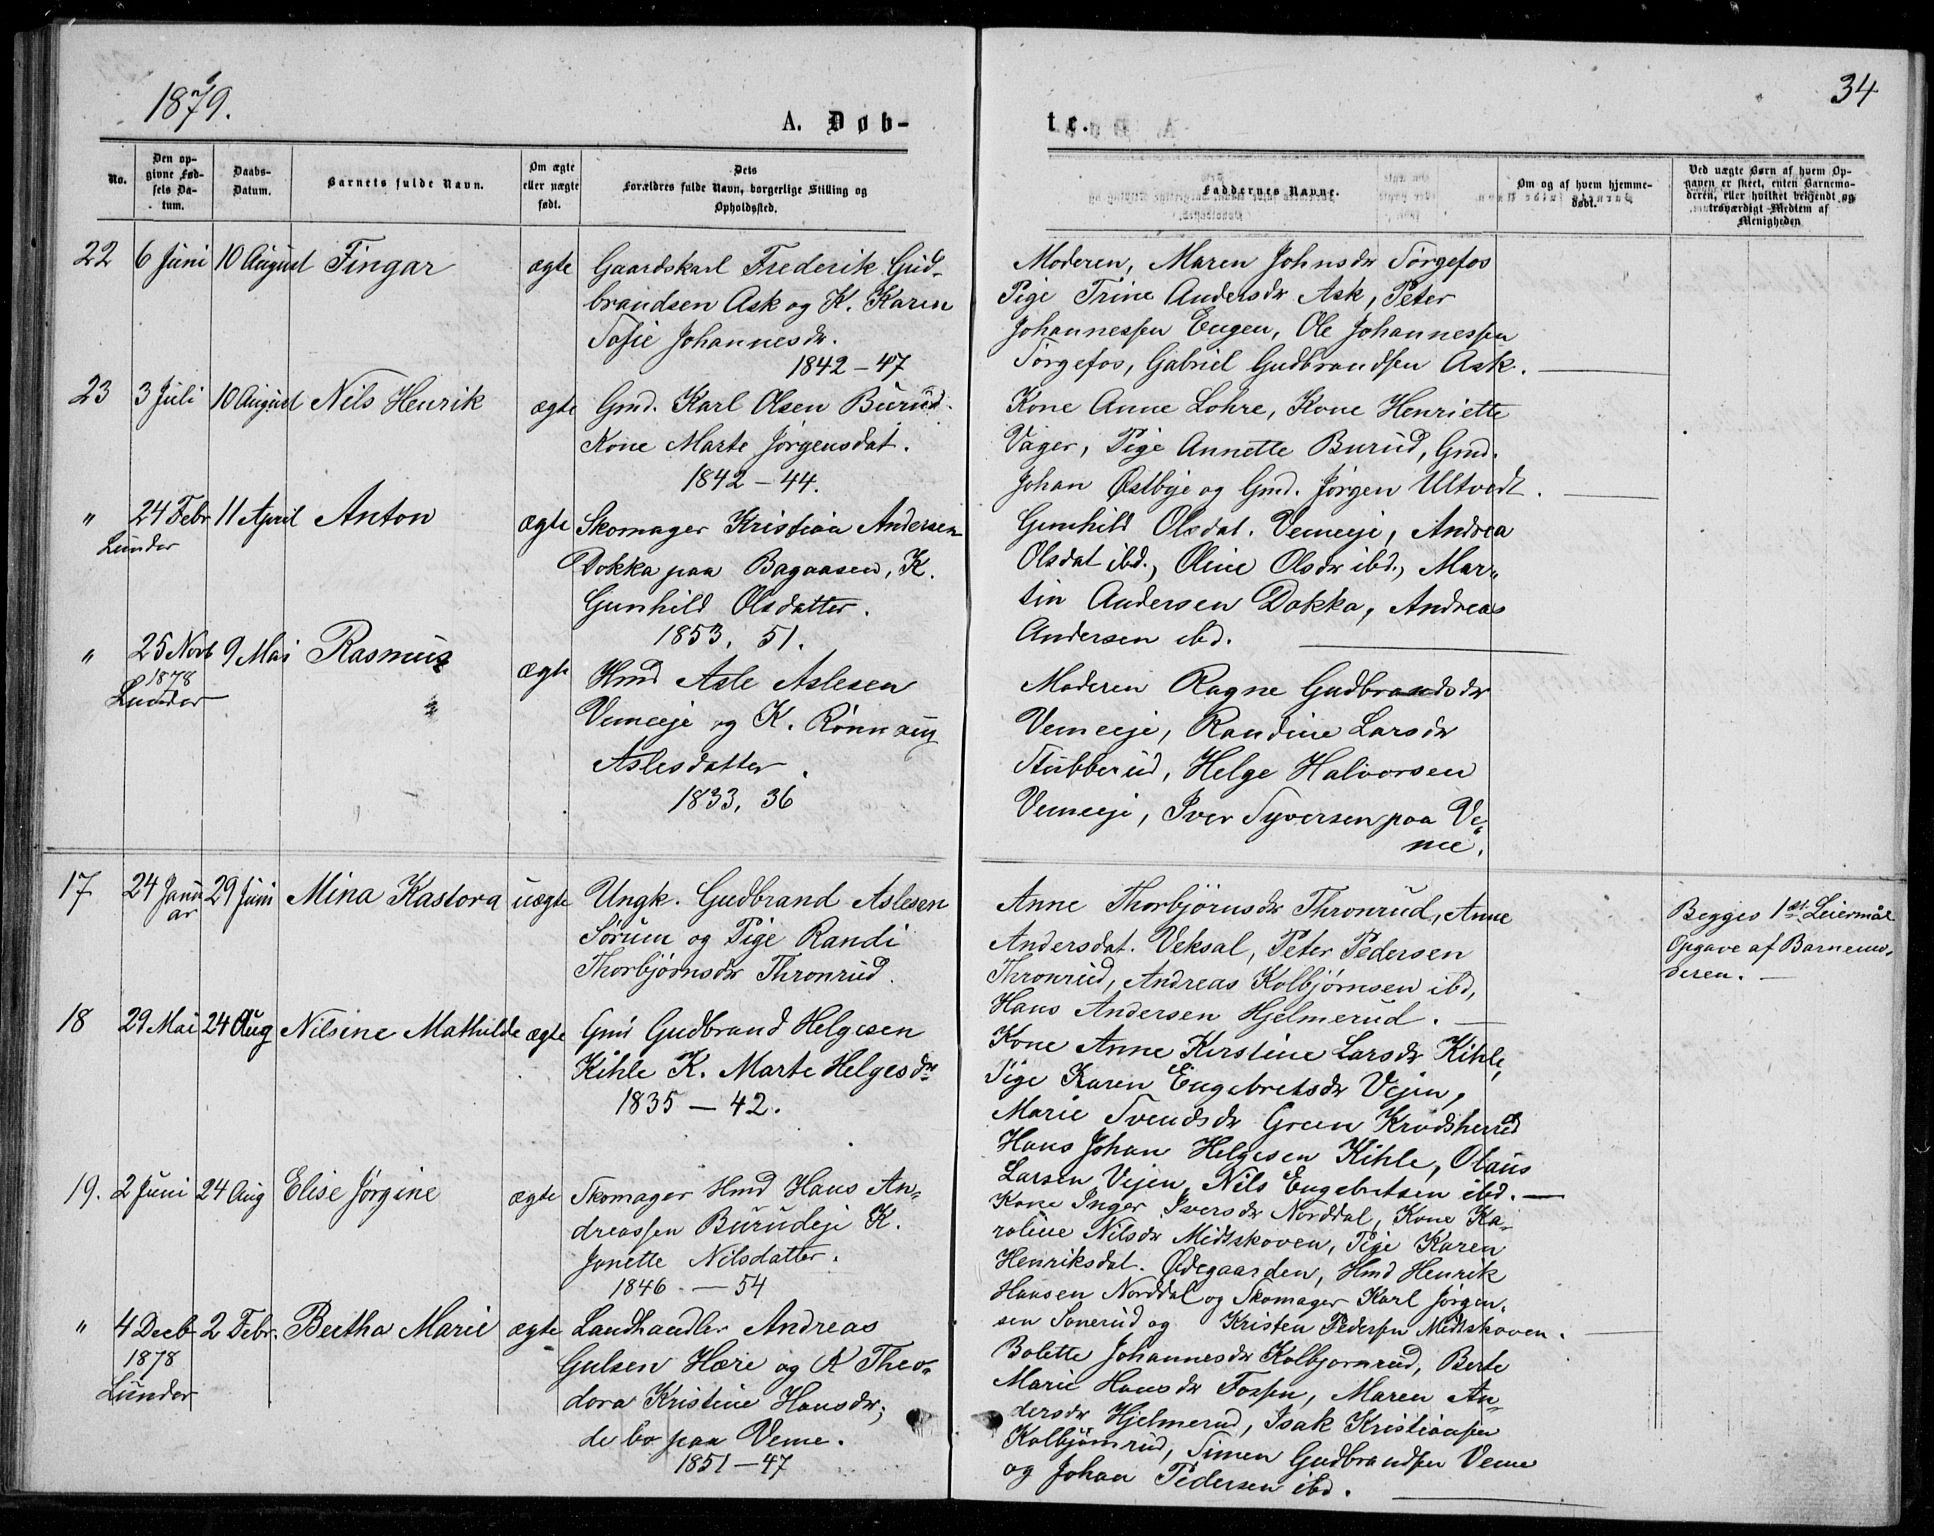 1879.
A. Døb-
te.
34
No.
Den op-
givne Fød-
sels Da-
tum.
Daabs-
Datum.
Barnets fulde Navn.
Om ægte
eller uægte
født.
Dets
Forældres fulde Navn, borgerlige Stilling og
Opholdssted.
Faddernes Navne.
Om og af hvem hjemme-
døbt.
Ved uægte Børn af hvem Op-
gaven er skeet, enten Barnemo-
deren, eller hvilket bekjendt og
troværdigt Medlem af
Menigheden
22 6 Juni 10 August Fingar ægte Gaardskarl Frederik Gud-
brandsen Ask og K. Karen
Sofie Johannesdr.
1842-47
Moderen, Maren Johnsdr Tørgefos
Pige Trine Andersdr Ask, Peter
Johannessen Engen, Ole Johannessen
Tørgefos, Gabriel Gudbrandsen Ask.
23 3 Juli 10 August Nils Henrik ægte Gmd. Karl Olsen Burud.
Kone Marte Jørgensdat.
1842-44.
Kone Anne Lohre, Kone Henriette
Vager, Pige Annette Burud, Gmd.
Johan Østbye og Gmd. Jørgen Ultvedt.
" 24 Febr 11 April Anton ægte Skomager Kristian Andersen
Lunder
Dokka paa Bagaasen, K.
Gunhild Olsdatter.
1853, 51.
Gunhild Olsdat. Vemeeje, Andrea
Olsdat ibd., Oline Olsdr ibd., Mar-
tin Andersen Dokka, Andreas
Andersen ibd.
" 25 Novb 9 Mai Rasmus ægte Hmd Asle Aslesen
1878
Lunder
Vemeeje og K. Rønnaug
Aslesdatter.
1833, 36
Moderen Ragne Gudbrandsdr
Vemeeje, Randine Larsdr
Stubberud, Helge Halvorsen
Vemeeje, Iver Syversen paa Ve-
me.
17 24 Janu 29 Juni Mina Kastora uægte Ungk. Gudbrand Aslesen
ar
Sørum og Pige Randi
Thorbjørnsdr Thronrud.
Anne Thorbjørnsdr Thronrud, Anne
Andersdat. Veksal, Peter Pedersen
Thronrud, Andreas Kolbjørnsen ibd,
Hans Andersen Hjelmerud.
Begges 1st. Leiermål
Opgave af Barnemo-
deren.
18 29 Mai 24 Aug Nilsine Mathilde ægte Gmd Gudbrand Helgesen
Kihle K. Marte Helgesdr
1835 - 42.
Kone Anne Kirstine Larsdr Kihle,
Pige Karen Engebretsdr Vejen,
Marie Svendsdr Green Krødsherred
Hans Johan Helgesen Kihle, Olaus
Larsen Vejen, Nils Engebretsen ibd.
19. 2 Juni 24 Aug Elise Jørgine ægte Skomager Hmd Hans An-
dreassen Burudeje K.
Janette Nilsdatter.
1846. - 54
Kone Inger Iversdr Norddal, Kone Ka-
roline Nilsdr Midtskoven, Pige Karen
Henriksdat. Ødegaarden, Hmd Henrik
Hansen Norddal og Skomager Karl Jørgen-
sen Sonerud og Kristen Pedersen Midtskoven.
" 4 Decb 2 Febr. Bertha Marie ægte Landhandler Andreas
1878
Lunder
Gulsen Hære og K Theo-
dora Kristine Hansdr;
de bo paa Veme.
1851-47
Bolette Johannesdr Kolbjørnrud, Berte
Marie Hansdr Fossen, Maren An-
dersdr Hjelmerud, Isak Kristiansen
Kolbjørnrud, Simen Gudbrandsen Veme
og Johan Pedersen ibd.